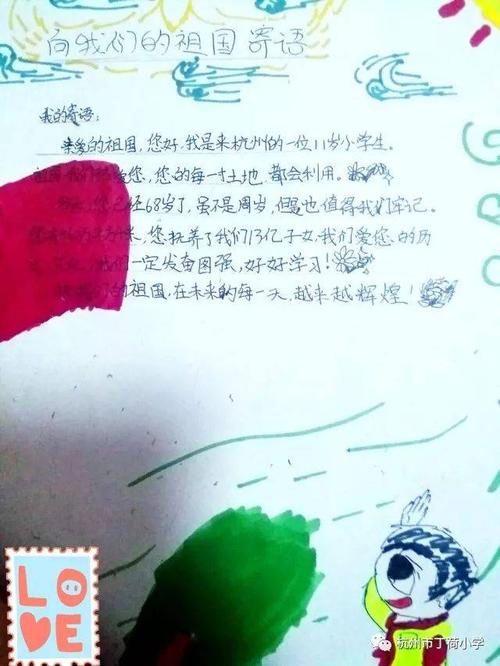 向我们的祖国寄语
我的寄语：
亲爱的祖国，您好，我是来杭州的一位11岁小学生。
祖国我们热爱您，您的每一寸土地，都会利用。
您已经68岁了，虽不是周岁，但是也值得我们牢记。
您抚养了我们13亿子女，我们爱您的历
我们一定发奋图强，好好学习！
我们的祖国，在未来的每一天，越来越辉煌！
LOVE
杭州市丁荷小学